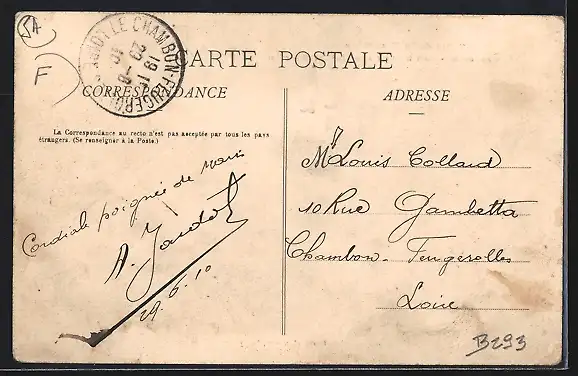 54
F
LE CHAMBON-FEUGEROLLES
CARTE POSTALE
CORRESPONDANCE
ADRESSE
La Correspondance au recto n'est pas acceptée par tous les pays
étrangers. (Se renseigner à la Poste.)
Cordiale poignée de main
A.
29.6.10
Mr Louis Collard
10 Rue Gambetta
Chambon-Feugerolles
Loire
B293